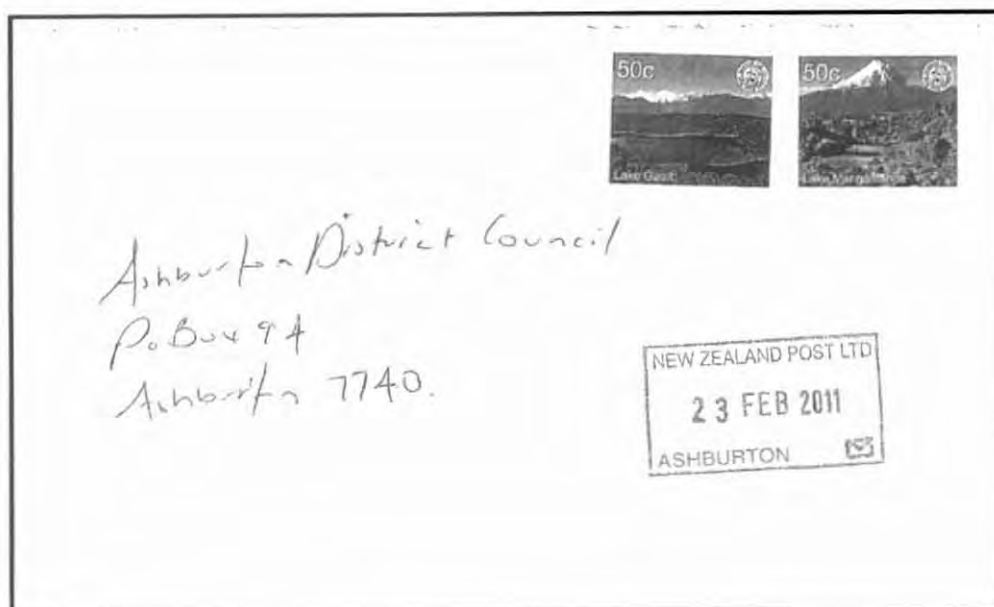 50c
Lake
50c
Lake
Ashburton District Council
P.O Box 94
Ashburton 7740.
NEW ZEALAND POST LTD
23 FEB 2011
ASHBURTON